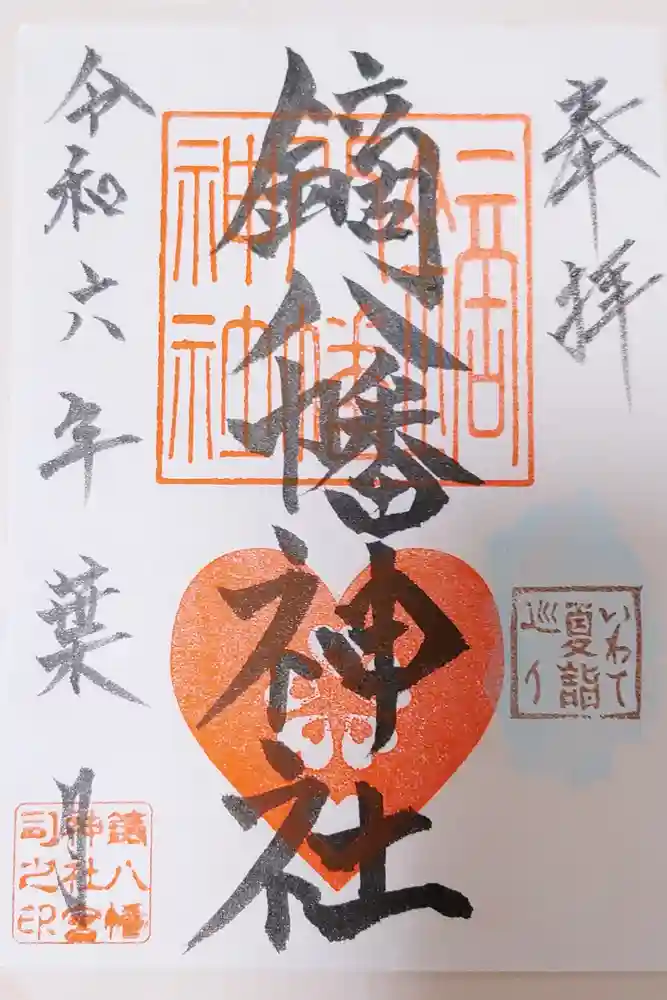 奉拝
いわて
夏詣
巡り
鏑八幡神社
令和六年葉月
鏑八幡
神社宮
司之印